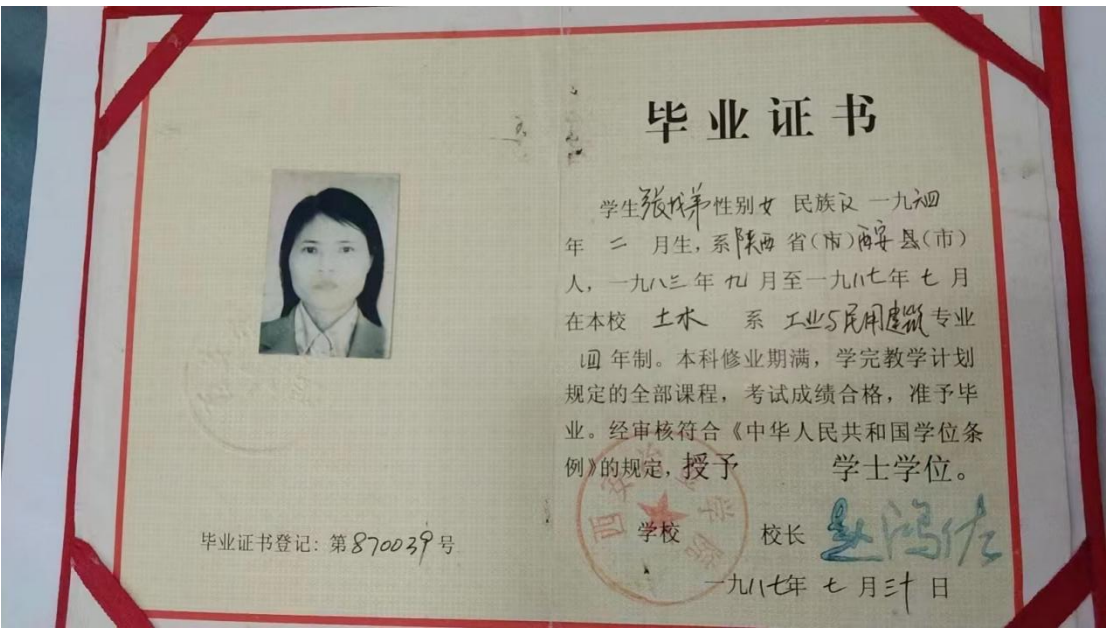 毕业证书
学生张找弟性别女 民族汉 一九六四
年 二 月生, 系陕西 省(市)西安县(市)
人, 一九八三年 九 月至一九八七年 七 月
在本校 土木 系 工业与民用建筑专业
四 年制。本科修业期满, 学完教学计划
规定的全部课程, 考试成绩合格, 准予毕
业。经审核符合《中华人民共和国学位条
例》的规定, 授予 学士学位。
学校 校长 赵鸿佐
一九八七年 七 月三十日
毕业证书登记: 第870039号
西安冶 学院